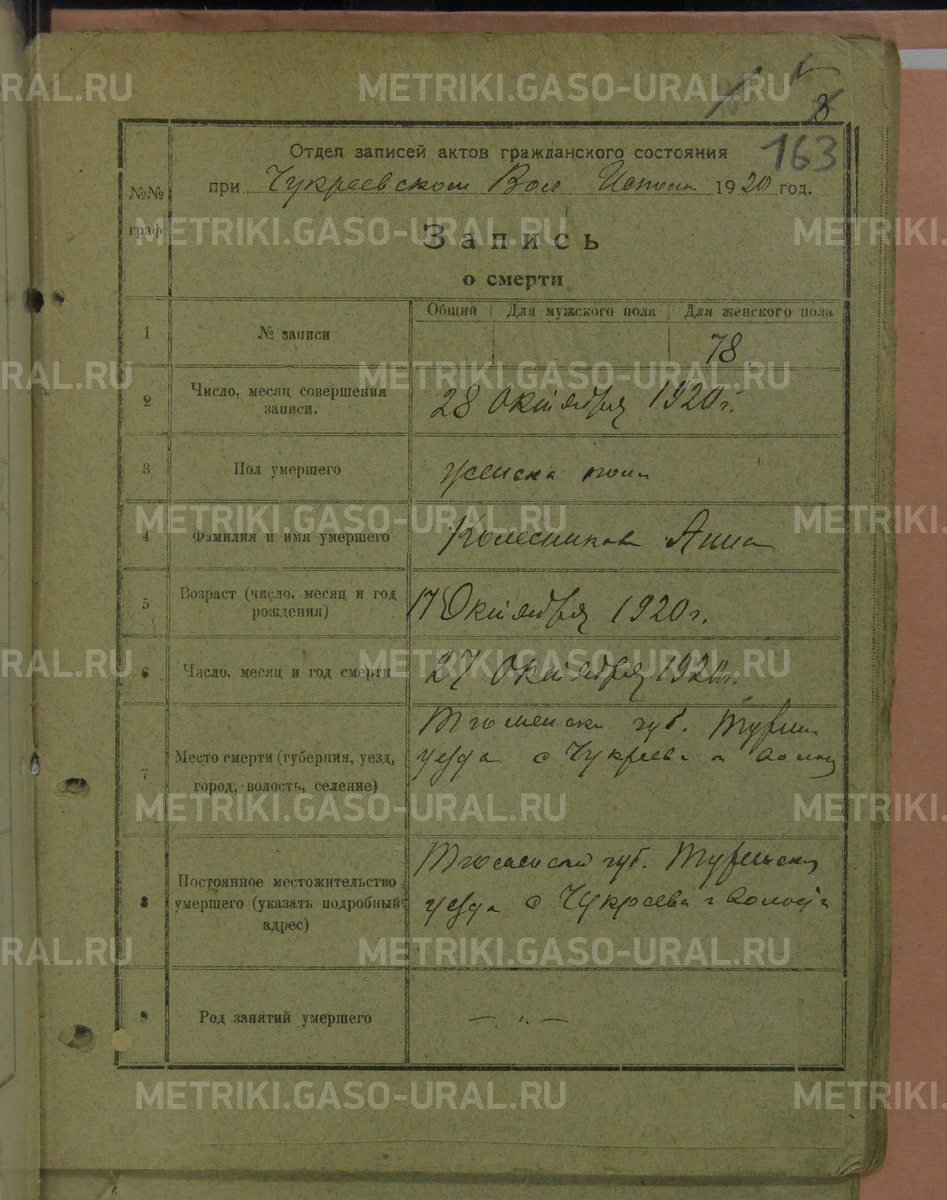 163
Отдел записей актов гражданского состояния
при Чукреевском Вол Исполк 1920 год.
№№ граф
Запись
о смерти
Общий Для мужского пола Для женского пола
1 № записи 78
2 Число, месяц совершения записи. 28 Октября 1920 г.
3 Пол умершего женска пола
4 Фамилия и имя умершего Колесникова Анна
5 Возраст (число, месяц и год рождения) 17 Октября 1920 г.
6 Число, месяц и год смерти 27 Октября 1920 г.
7 Место смерти (губерния, уезд, город, волость, селение) Тюменска губ. Турин
уезда с Чукреевка волос
8 Постоянное местожительство умершего (указать подробный адрес) Тюменской губ. Туринска
уезда с Чукреевка волости
9 Род занятий умершего — „ —
METRIKI.GASO-URAL.RU